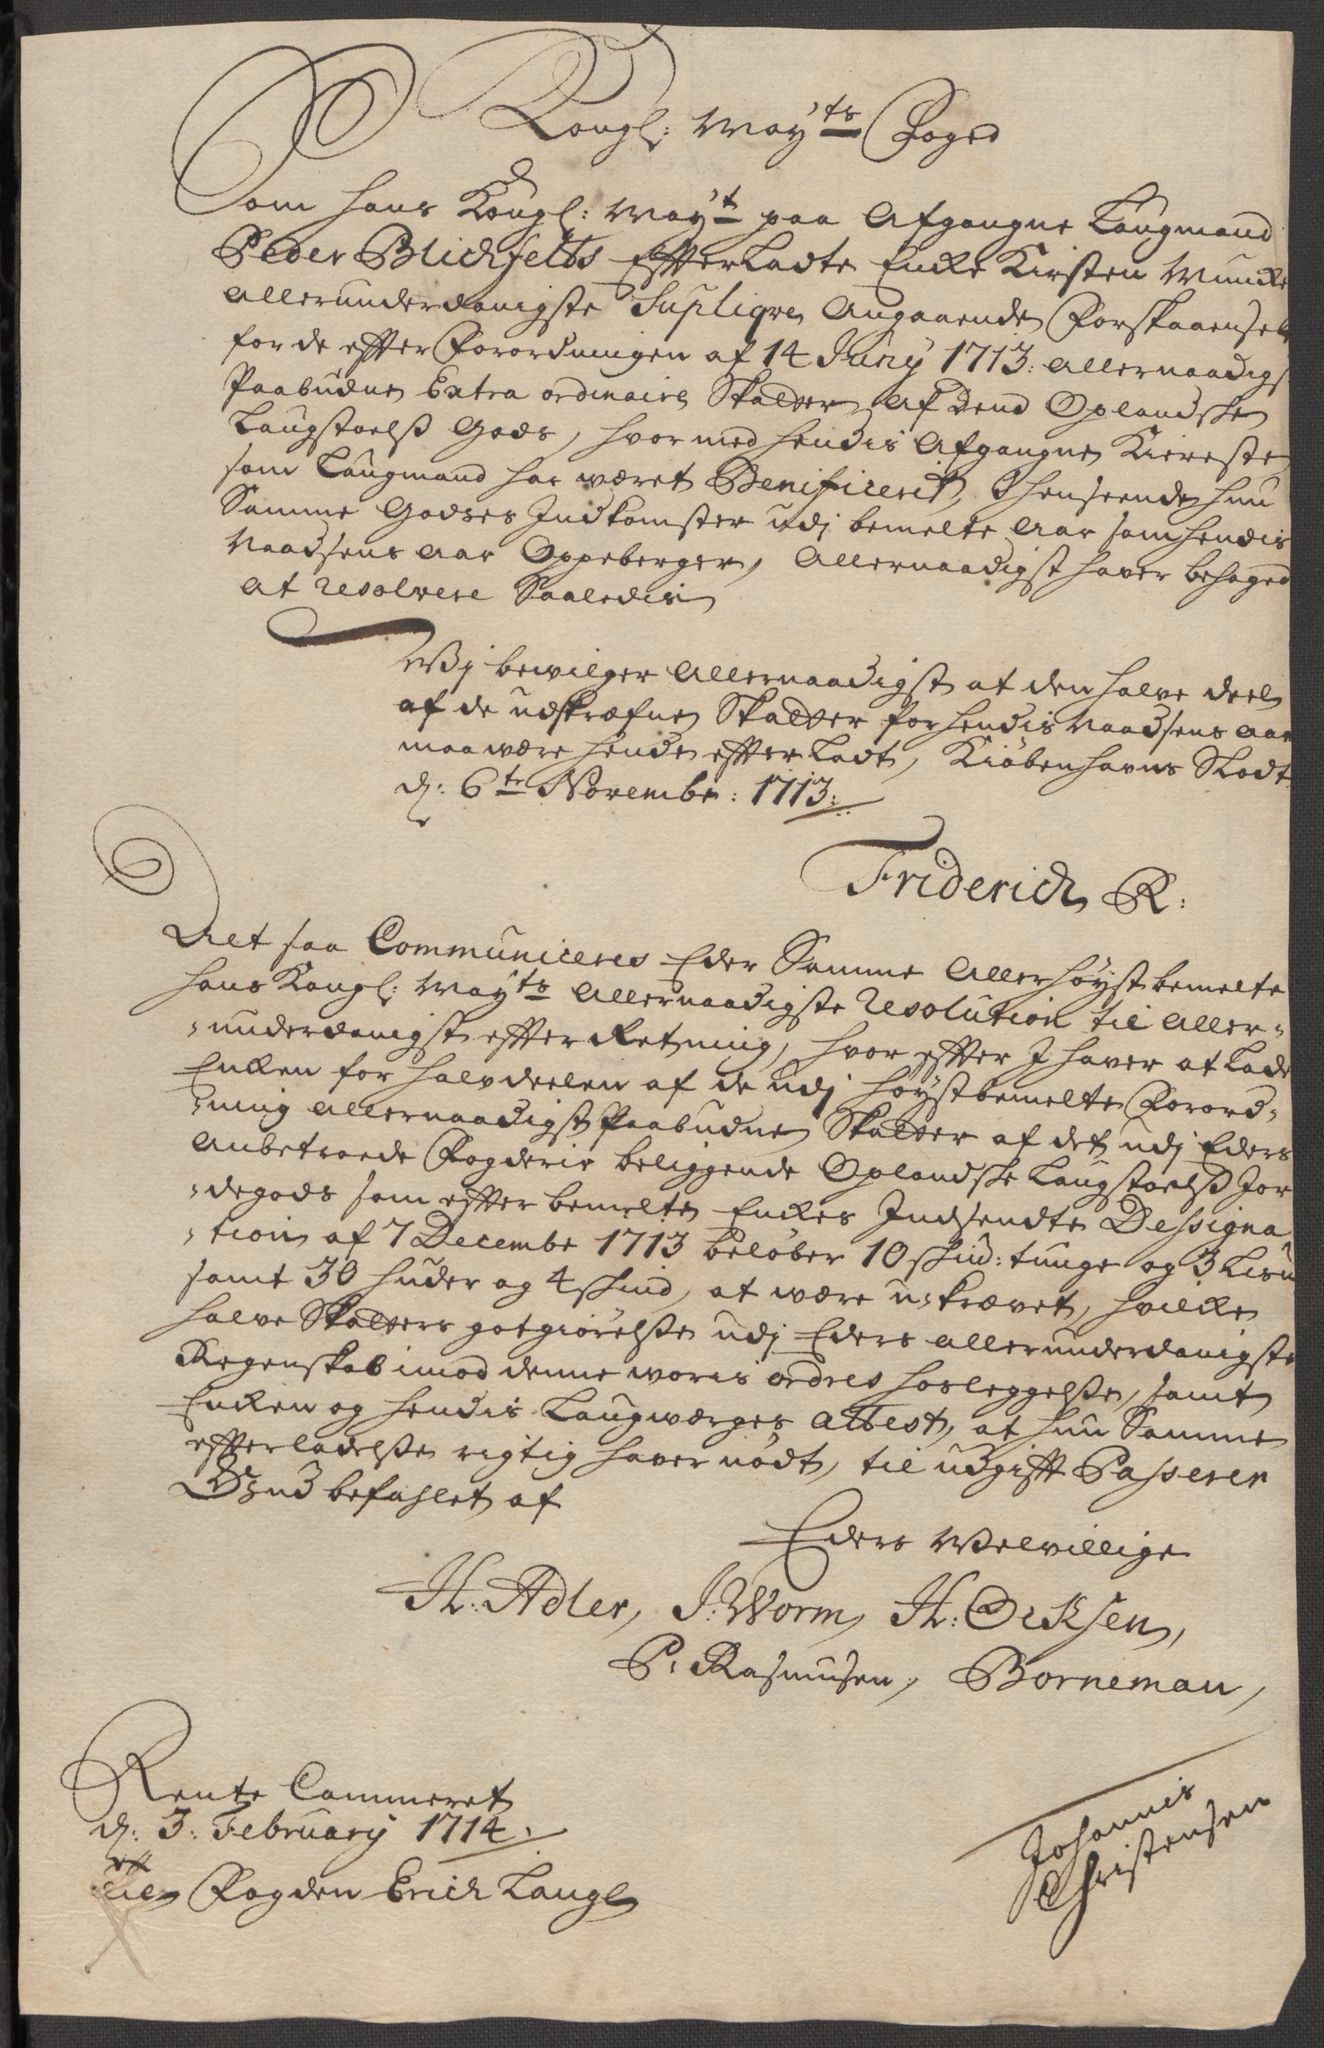 Kongl: May:ts Foged
Som hans Kongl: May:t paa Afgangne Laugmand
Peder Blichfelts Effterladte Encke Kirsten Muncke
Allerunderdanigste Supliqve Angaaende Forskaanselse
for de effter Forordningen af 14 Juny 1713: allernaadigst
Paabudne Extra ordinaire Skatter af Dend Oplandske
Laugstoelß Gods, hvormed hendis Afgangne Kiereste
som Laugmand har wæret Benificerit, I henseende hun
Samme Godses Indkomster udj bemelte Aar som hendis
Naadsens Aar Oppeberger, Allernaadigst haver behaged
At resolvere Saaledis
Wj bewilger Allernaadigst at den halve deel
af de udskrefne Skatter for hendis Naadsens Aar
maa være hende effterladt, Kiøbenhavns Slodt
d: 6te Novembr: 1713:
Friderich R:
Alt saa Communiceres Eder Samme Allerhøystbemelte
hans Kongl: May:ts Allernaadigste resolution til Aller-
-underdanigst effterRetning, hvor effter I haver at Lade
Encken for halvdeelen af de udj høystbemelte Forord-
-ning Allernaadigst Paabudne Skatter af det udj Eders
Anbetroede Fogderie beliggende Oplandske Laugstoelß Jor
-degods som effter bemelte Enckes Indsendte Dessigna
-tion af 7 Decembr 1713 beløber 10 skind: tunge og 3 Lisu
samt 30 huder og 4 skind, at være u-krævet, hvilcke
halve Skatters gotgiørelsse udj Eders allerunderdanigste
Regenskab imod denne woris ordres hosleggelsse, samt
Encken og hendis Laugværges Attest, at hun Samme
effterladelsse rigtig haver nødt, til udgifft Passerer
Gud befahlet af
Eders Welvillige
H: Adler, J: Worm, H: Ocksen,
P: Rasmusen, Borneman,
Rente Cammeret
d: 3: February 1714.
Johannis
Christensen
Til Fogden Erich Lange